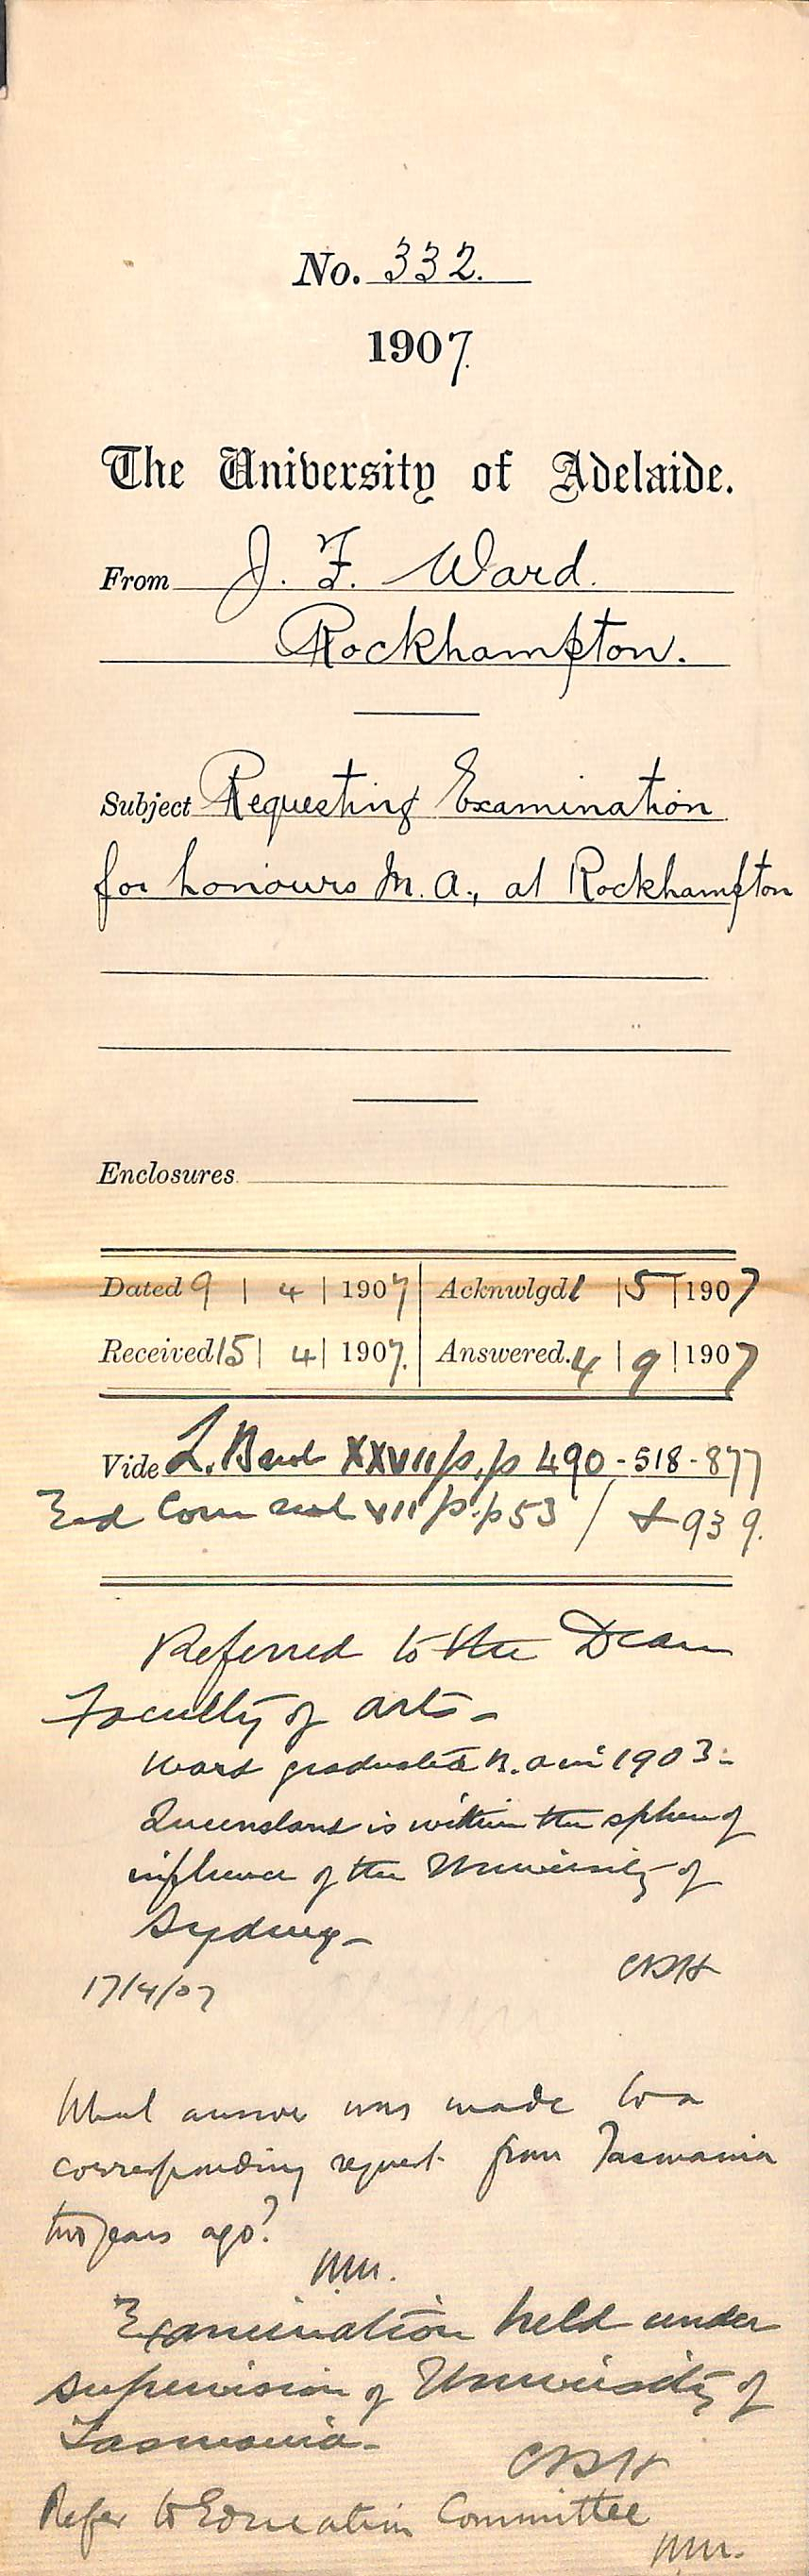 No. 332.
1907.
The University of Adelaide.
From J. F. Ward.
Rockhampton.
Subject Requesting Examination
for honours M.A., at Rockhampton
Enclosures
Dated 9 | 4 | 1907 Acknwlgd 1 | 5 | 1907
Received 15 | 4 | 1907. Answered. 4 | 9 | 1907
Vide L. Book XXVII p.p 490-518-877
Ed Com vol VII p.p 53 / & 939.
Referred to the Dean
Faculty of Arts -
Ward graduated B.A in 1903 -
Queensland is within the sphere of
influence of the University of
Sydney -
17/4/07 CRH
What answer was made to a
corresponding request from Tasmania
two years ago?
Examination held under
supervision of University of
Tasmania -
CRH
Refer to Education Committee